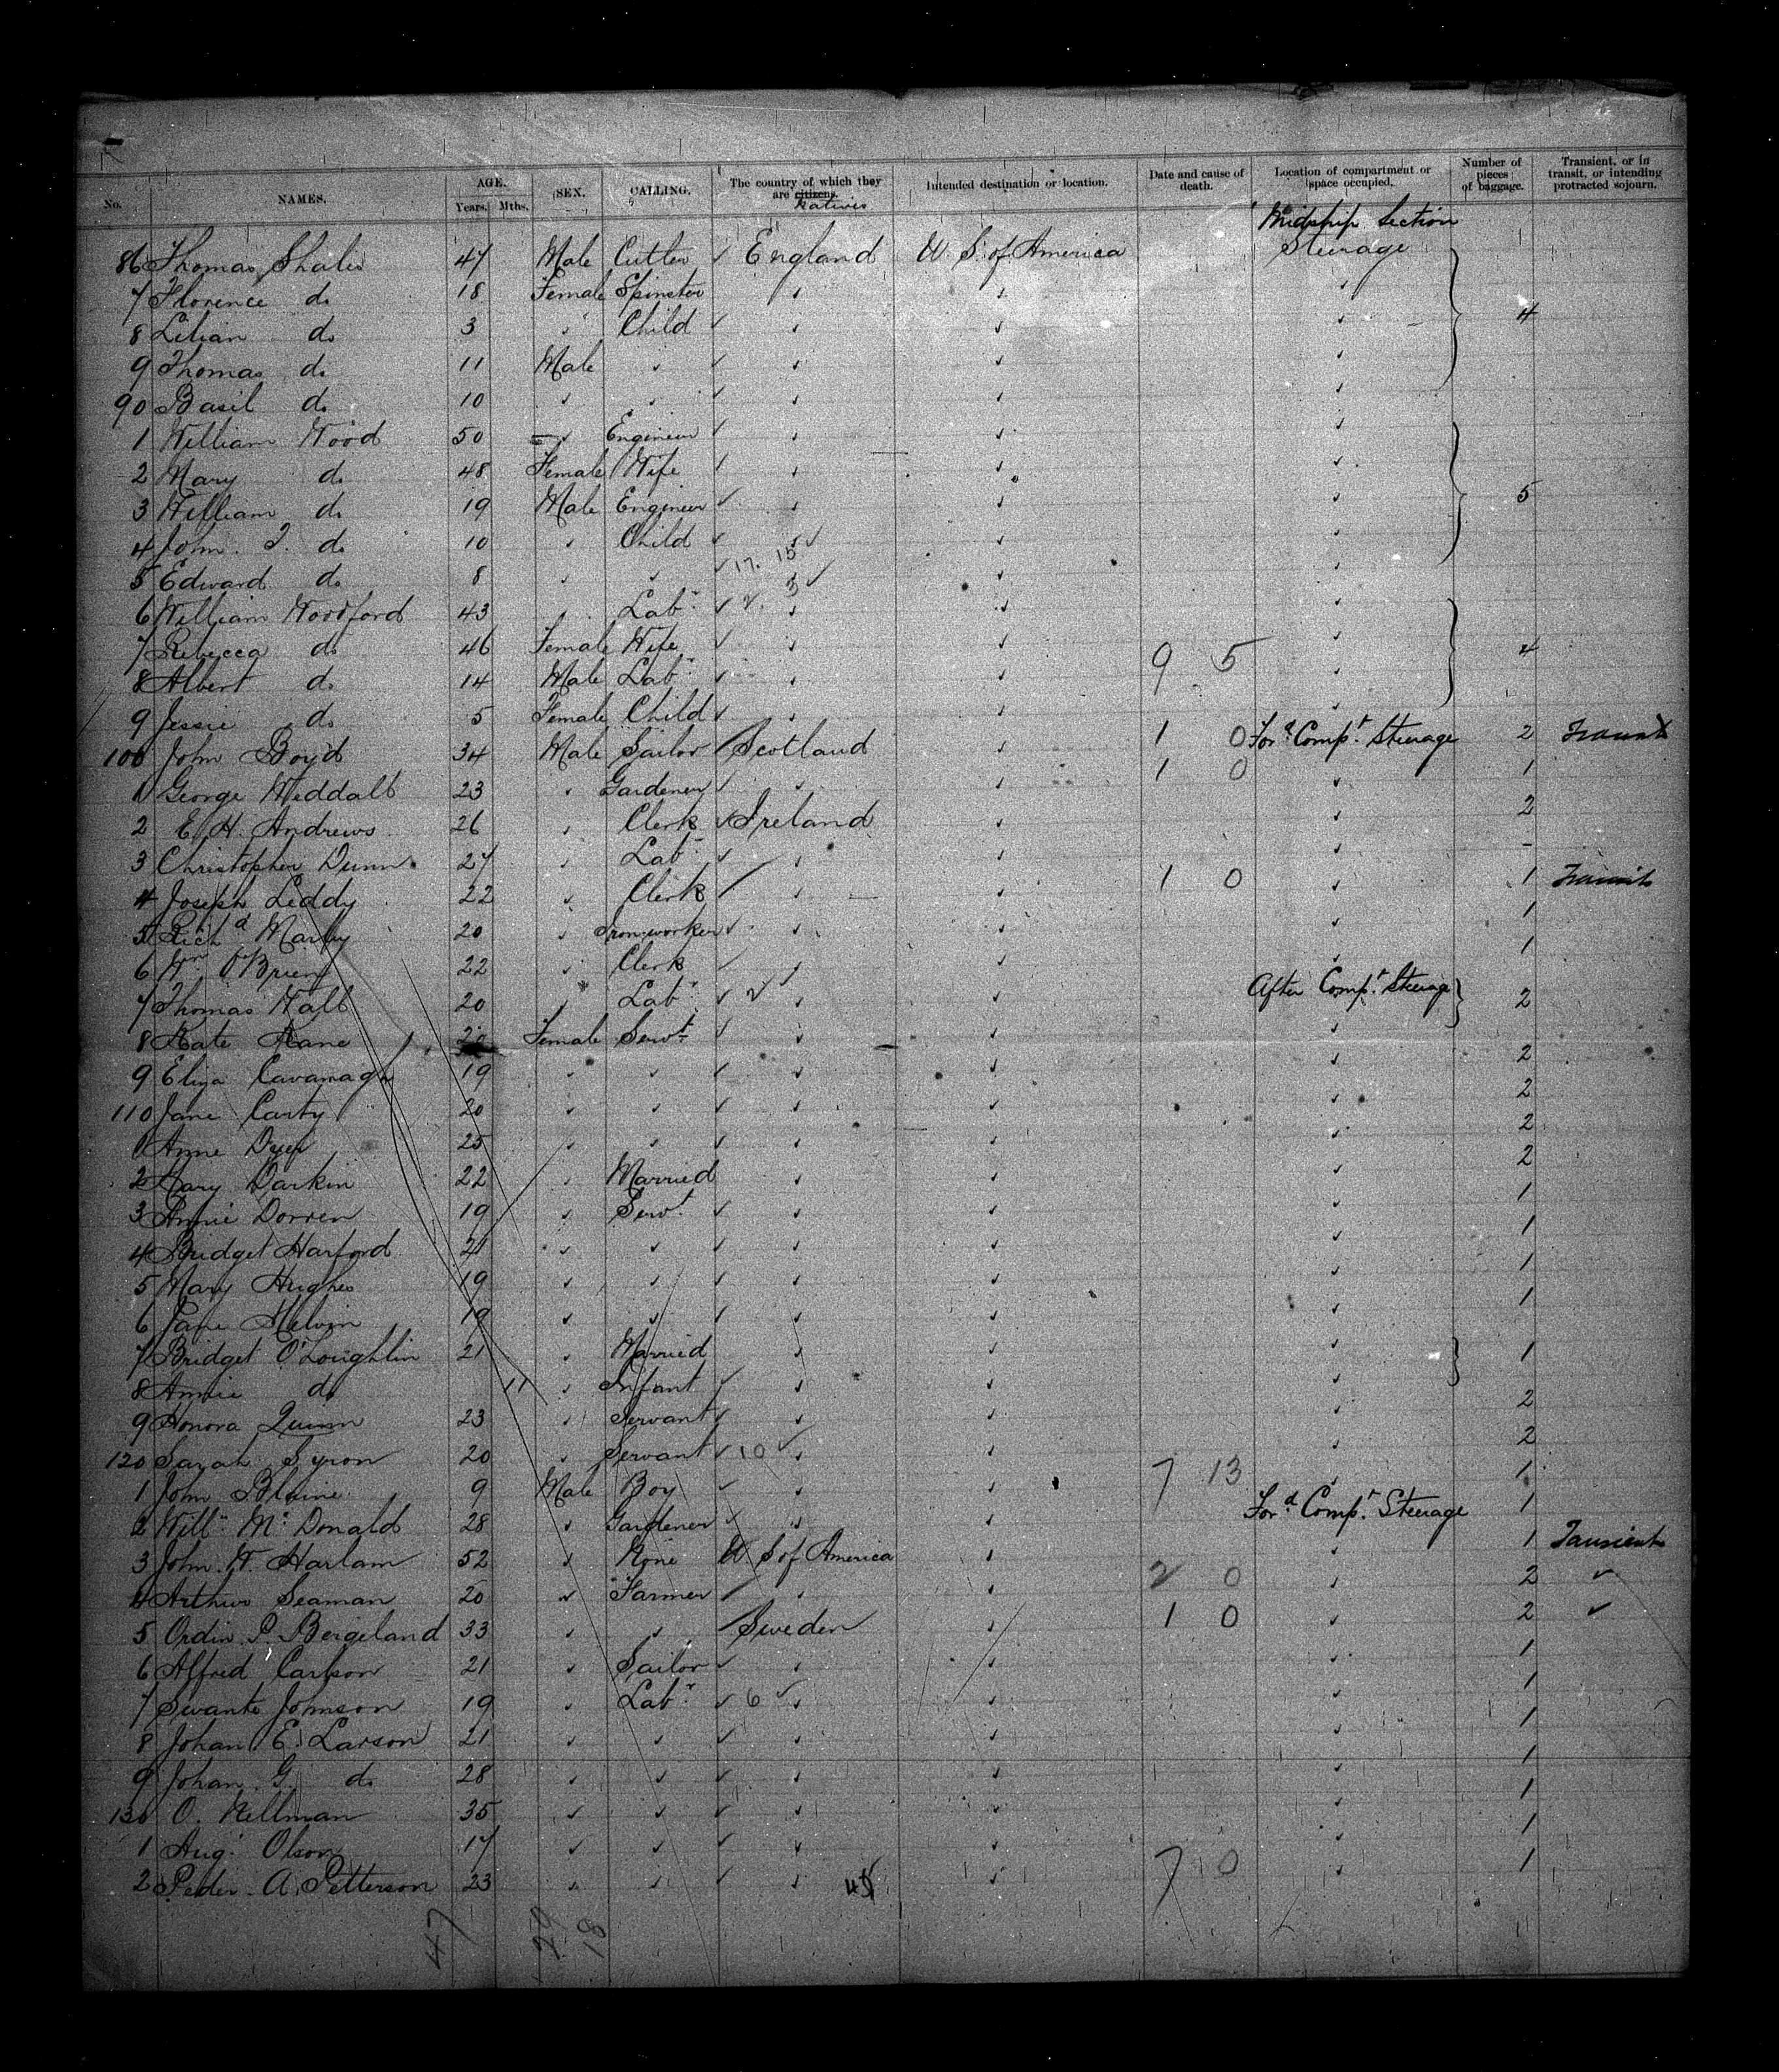 No. NAMES. AGE. Years. Mths. SEX. CALLING. The country of which they are citizens. natives Intended destination or location. Date and cause of death. Location of compartment or space occupied. Number of pieces of baggage. Transient, or in transit, or intending protracted sojourn.
Midship Section
86 Thomas 47 Male Cutler ✓ England U. S. of America Steerage
7 Florence do 18 Female Spinster ✓ ✓ ✓
8 Lilian do 3 ✓ Child ✓ ✓ ✓ ✓ 4
9 Thomas do 11 Male ✓ ✓ ✓ ✓ ✓
90 Basil do 10 ✓ ✓ ✓ ✓ ✓ ✓
1 William Wood 50 ✓ Engineer ✓ ✓ ✓ ✓
2 Mary do 48 Female Wife ✓ ✓ ✓ ✓
3 William do 19 Male Engineer ✓ ✓ ✓ ✓ 5
4 John. J. do 10 ✓ Child ✓ ✓ ✓ ✓ ✓
17. 15
5 Edward do 8 ✓ ✓ ✓ 3 ✓ ✓ ✓
6 William Woodford 43 ✓ Labr ✓ 2. ✓ ✓ ✓
7 Rebecca do 46 Female Wife ✓ ✓ ✓ 9 5 ✓ 4
8 Albert do 14 Male Labr ✓ ✓ ✓ ✓
9 Jessie do 5 Female Child ✓ ✓ ✓ ✓
100 John Boyd 34 Male Sailor ✓ Scotland ✓ 1 0 Ford Compt Steerage 2 Transit
1 George Weddall 23 ✓ Gardener ✓ ✓ ✓ 1 0 ✓ 1
2 E. H. Andrews 26 ✓ Clerk ✓ Ireland ✓ ✓ 2
3 Christopher Dunn 27 ✓ Labr ✓ ✓ ✓ ✓ -
4 Joseph Leddy 22 ✓ Clerk ✓ ✓ ✓ 1 0 ✓ 1 Transit
5 Richd 20 ✓ Ironworker ✓ ✓ ✓ ✓ 1
6 Wm O'Brien 22 ✓ Clerk ✓ ✓ ✓ ✓ 1
7 Thomas Wall 20 ✓ Labr ✓ 2 ✓ ✓ ✓ After Compt Steerage 2
8 Kate Kane 20 Female Servt ✓ ✓ ✓ ✓
9 Eliza Cavanagh 19 ✓ ✓ ✓ ✓ ✓ ✓ 2
110 Jane Carty 20 ✓ ✓ ✓ ✓ ✓ ✓ 2
1 Anne 25 ✓ ✓ ✓ ✓ ✓ ✓ 2
2 Mary Darkin 22 ✓ Married ✓ ✓ ✓ 2
3 Annie Dorren 19 ✓ Servt ✓ ✓ ✓ ✓ 1
4 Bridget Harford 21 ✓ ✓ ✓ ✓ ✓ ✓ 1
5 Mary Hughes 19 ✓ ✓ ✓ ✓ ✓ ✓ 1
6 Jane Melvin 19 ✓ ✓ ✓ ✓ ✓ ✓ 1
7 Bridget O'Loughlin 21 ✓ Married ✓ ✓ ✓ 1
8 Annie do 11 ✓ Infant ✓ ✓ ✓ ✓
9 Honora Quinn 23 ✓ Servant ✓ ✓ ✓ ✓ 2
120 Sarah Syron 20 ✓ Servant ✓ 10 ✓ ✓ ✓ ✓ 2
1 John Blaine 9 Male Boy ✓ ✓ ✓ 7 13 ✓ 1
2 Willm McDonald 28 ✓ Gardener ✓ ✓ ✓ Ford Compt Steerage 1
3 John. W. Harlam 52 ✓ None U. S of America ✓ ✓ 1 Transient
4 Arthur Seaman 20 ✓ Farmer ✓ ✓ ✓ 2 0 ✓ 2 ✓
5 Ordin P. Bergeland 33 ✓ ✓ ✓ Sweden ✓ 1 0 ✓ 2 ✓
6 Alfred Carlson 21 ✓ Sailor ✓ ✓ ✓ ✓ 1
7 Swante Johnson 19 ✓ Labr ✓ 6 ✓ ✓ ✓ ✓ 1
8 Johan E. Larson 21 ✓ ✓ ✓ ✓ ✓ ✓ 1
9 Johan G. do 28 ✓ ✓ ✓ ✓ ✓ ✓ 1
130 O. Nellman 35 ✓ ✓ ✓ ✓ ✓ ✓ 1
1 Aug. Olson 17 ✓ ✓ ✓ ✓ ✓ ✓ 1
2 Peder. A. Petterson 23 ✓ ✓ ✓ ✓ ✓ 7 0 ✓ 1
47 29 18